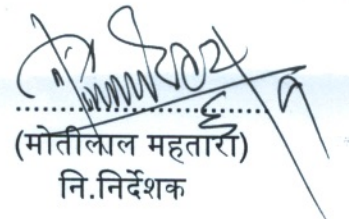 (मोतीलाल महतारा)
नि.निर्देशक